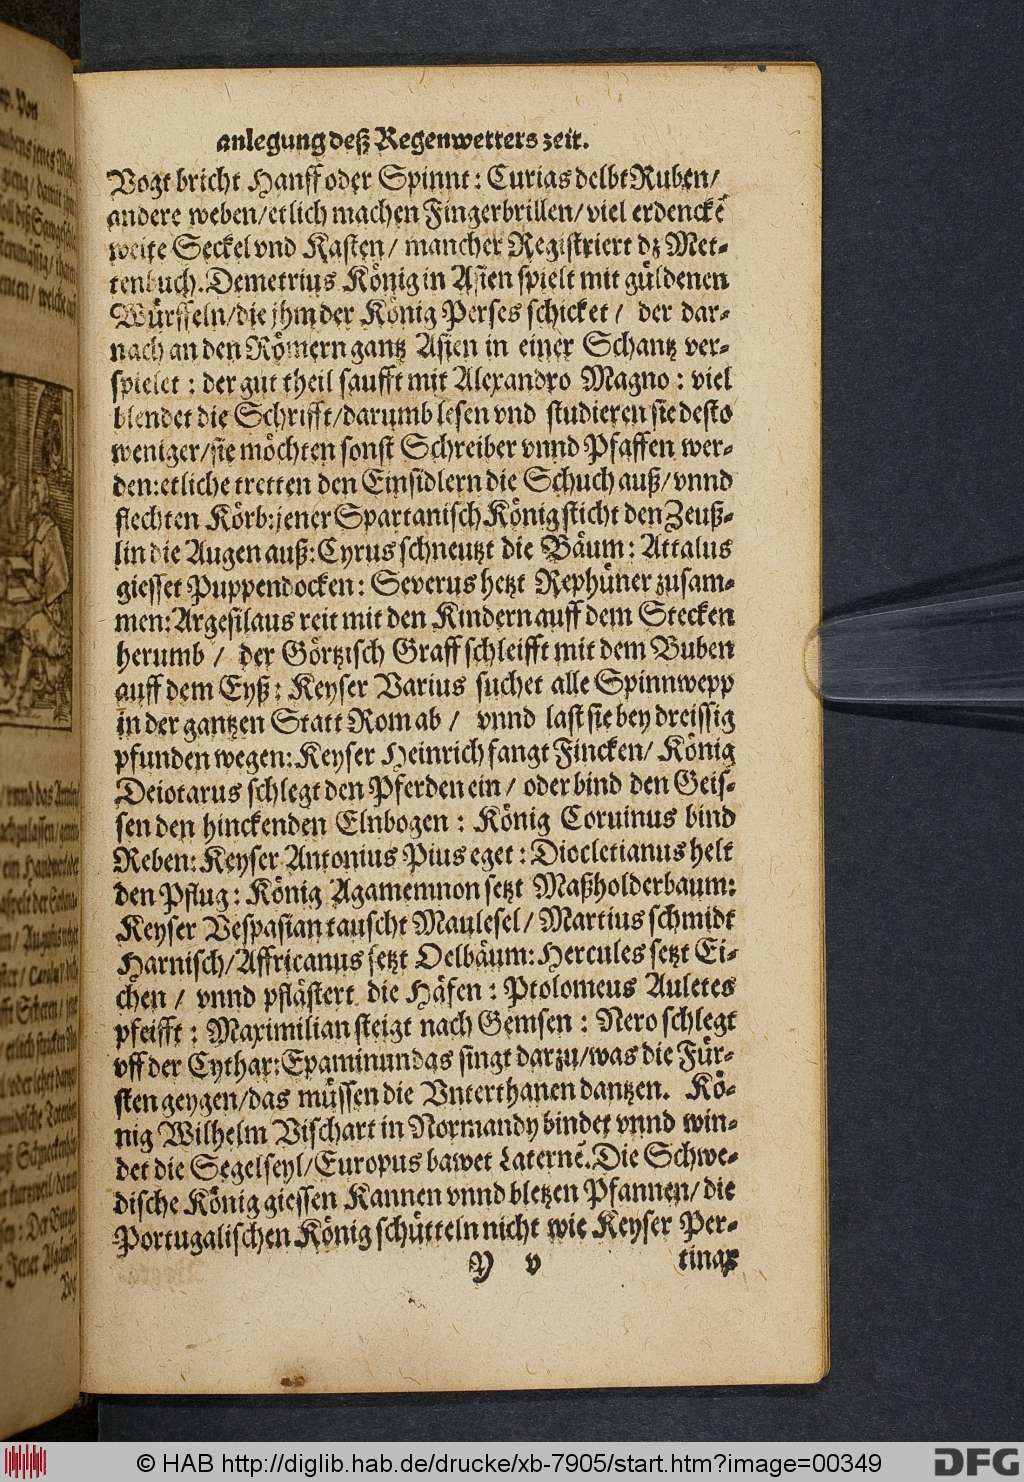 anlegung deß Regenwetters zeit.
Vogt bricht Hanff oder Spinnt: Curias delbt Ruben/
andere weben/etlich machen Fingerbrillen/ viel erdenckẽ
weite Seckel vnd Kasten/ mancher Registriert dz Met-
tenbuch. Demetrius König in Asien spielt mit güldenen
Würffeln/die jhm der König Perses schicket / der dar-
nach an den Römern gantz Asien in einer Schantz ver-
spielet : der gut theil saufft mit Alexandro Magno : viel
blendet die Schrifft/darumb lesen vnd studieren sie desto
weniger/sie möchten sonst Schreiber vnnd Pfaffen wer-
den:etliche tretten den Einsidlern die Schuch auß/vnnd
flechten Körb:jener Spartanisch König sticht den Zeuß-
lin die Augen auß:Cyrus schneutzt die Bäum: Attalus
giesset Puppendocken: Severus hetzt Rephüner zusam-
men:Argesilaus reit mit den Kindern auff dem Stecken
herumb / der Görtzisch Graff schleifft mit dem Buben
auff dem Eyß: Keyser Varius suchet alle Spinnwepp
in der gantzen Statt Rom ab / vnnd last sie bey dreissig
pfunden wegen: Keyser Heinrich fangt Fincken/ König
Deiotarus schlegt den Pferden ein / oder bind den Geis-
sen den hinckenden Elnbogen : König Coruinus bind
Reben: Keyser Antonius Pius eget : Diocletianus helt
den Pflug: König Agamemnon setzt Maßholderbaum:
Keyser Vespasian tauscht Maulesel/ Martius schmidt
Harnisch/Affricanus setzt Oelbäum: Hercules setzt Ei-
chen / vnnd pflästert die Häfen : Ptolomeus Auletes
pfeifft : Maximilian steigt nach Gemsen : Nero schlegt
vff der Cythar: Epaminundas singt darzu/was die Für-
sten geygen/das müssen die Vnterthanen dantzen. Kö-
nig Wilhelm Vischart in Normandy bindet vnnd win-
det die Segelseyl/Europus bawet Laternẽ. Die Schwe-
dische König giessen Kannen vnnd bletzen Pfannen/ die
Portugalischen König schütteln nicht wie Keyser Per-
Y v tinax
© HAB http://diglib.hab.de/drucke/xb-7905/start.htm?image=00349
DFG